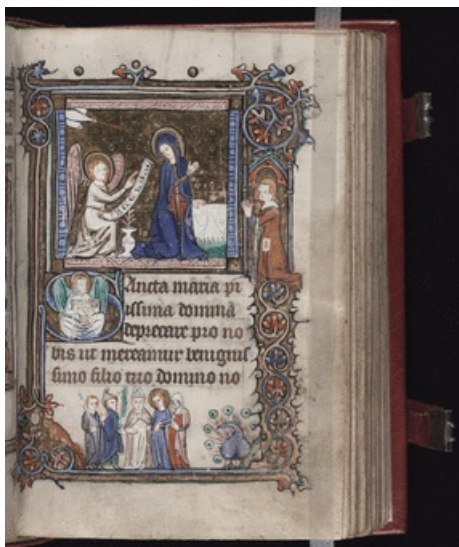 Sancta maria pi
issima domina
deprecare pro no
bis ut mereamur benignis
simo filio tuo domino no